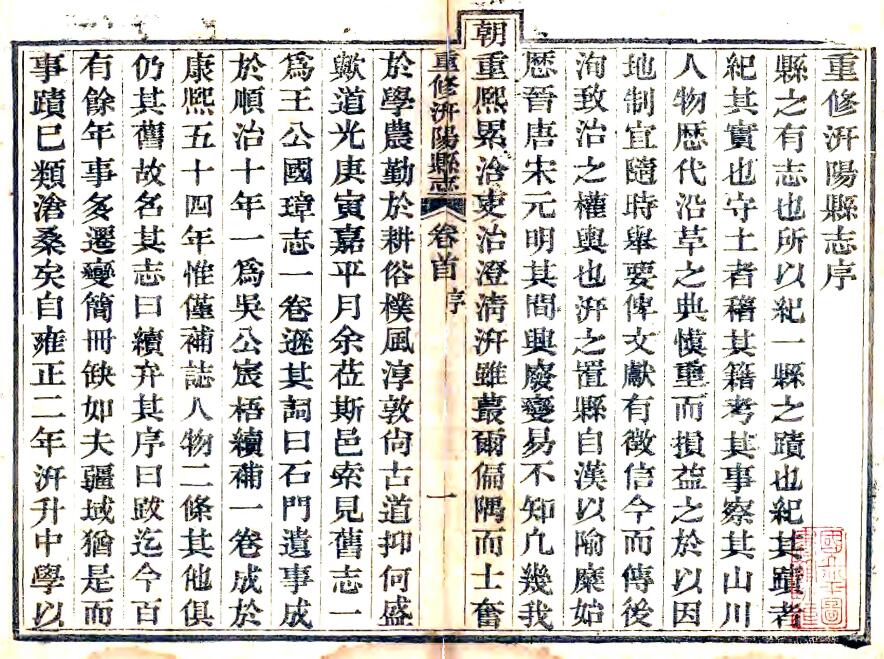 重修汧陽縣志序
縣之有志也所以紀一縣之蹟也紀其蹟者
紀其實也守土者稽其籍考其事察其山川
人物歷代沿革之典慎重而損益之於以因
地制宜隨時舉要俾文獻有徵信今而傳後
洵致治之權輿也汧之置縣自漢以隃麋始
歷晉唐宋元明其間興廢變易不知凢幾我
朝重熈累洽吏治澄清汧雖蕞爾偏隅而士奮
重修汧陽縣志 卷首 序 一
於學農勤於耕俗樸風淳敦尙古道抑何盛
歟道光庚寅嘉平月余莅斯邑索見舊志一
爲王公國瑋志一卷遜其詞曰石門遺事成
於順治十年一爲吳公宸梧續補一卷成於
康熈五十四年惟僅補誌人物二條其他俱
仍其舊故名其志曰續弁其序曰跋迄今百
有餘年事多遷變簡冊缺如夫疆域猶是而
事蹟已類滄桑矣自雍正二年汧升中學以